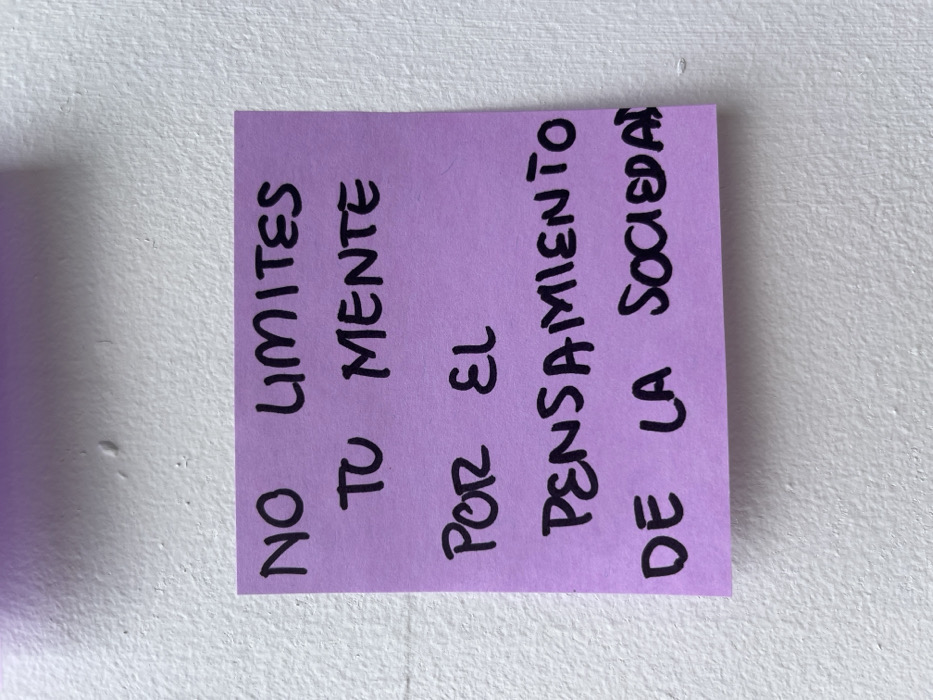 NO LIMITES
TU MENTE
POR EL
PENSAMIENTO
DE LA SOCIEDAD